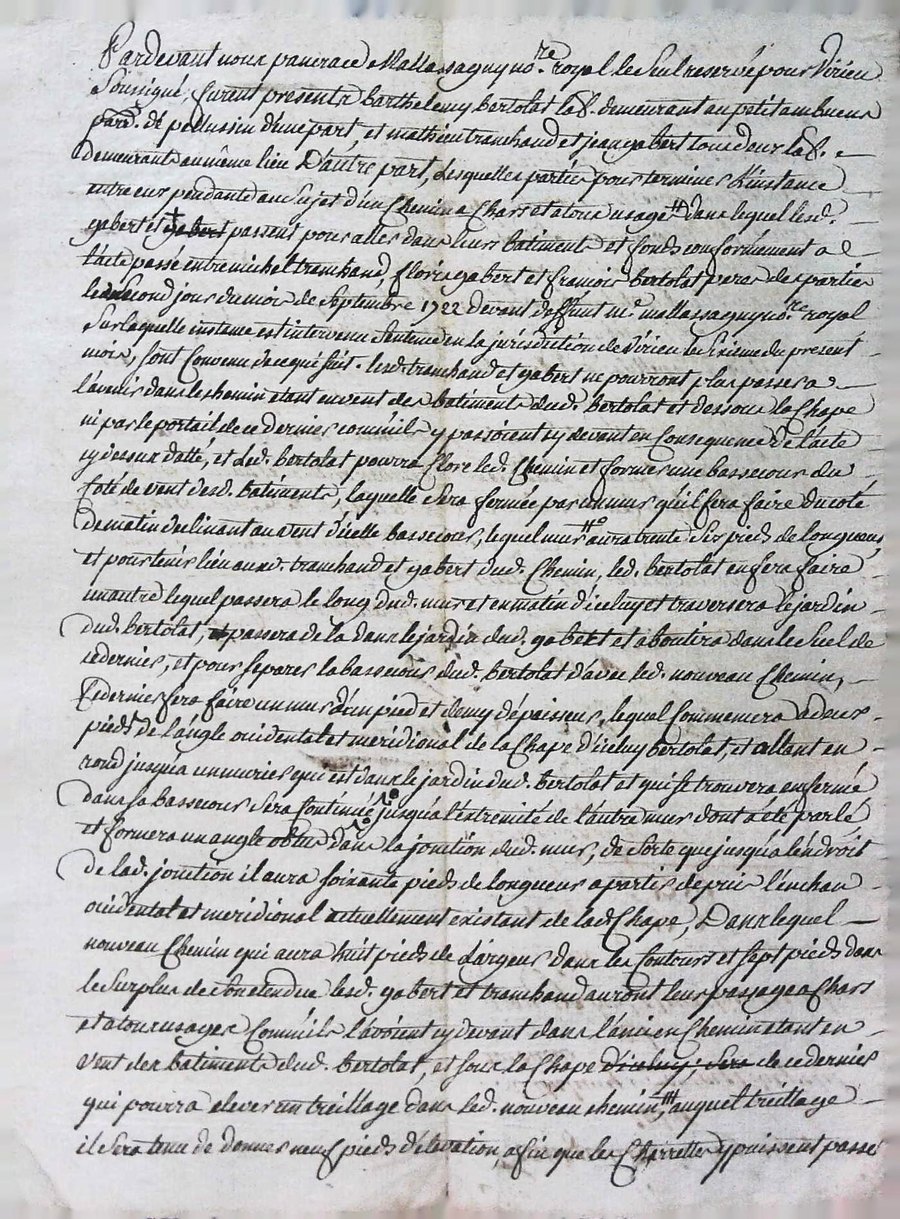 Pardevant nous pancrace Mallassagny no.re royal le seul reservé pour Virieu
soussigné, furent presents barthelemy bertolat lab. demeurant au petit
par. de pelussin d'une part, et mathieu tranchand et jean gabert tous deux lab.
demeurants au même lieu D'autre part, Lesquelles parties pour terminer L'instance
entre eux pendante au sujet d'un Chemin a Chars et a tous usages dans lequel lesd.
gabert et gabert passent pour aller dans leurs batiments et fonds conformément a
l'acte passé entre michel tranchand, floris gabert et francois bertolat peres des parties
le second jour du mois de septembre 1722 devant deffunt me. mallassagny no.re royal
sur laquelle instance est intervenu sentence en la jurisdiction de Virieu le sixieme du present
mois, sont Convenu de ce qui suit. lesd. tranchand et gabert ne pourront plus passer a
l'avenir dans le chemin etant en vent des batiments dud. bertolat et dessous la Chape
ni par le portail de ce dernier comm'ils y passoient cy devant en Consequence de l'acte
cy dessus datté, et Led. bertolat pourra Clore led. Chemin et former une bassecour du
coté de vent desd. batiments, laquelle sera fermée par un mur qu'il fera faire du coté
de matin declinant au vent d'icelle bassecour, lequel mur aura trente six pieds de longueur,
et pour tenir lieu auxd. tranchand et gabert dud. Chemin, led. bertolat en fera faire
un autre lequel passera le long dud. mur et en matin d'iceluy et traversera le jardin
dud. bertolat, et passera de la dans le jardin dud. gabert et aboutira dans le suel de
ce dernier, et pour separer la bassecour dud. bertolat d'avec led. nouveau Chemin,
Ce dernier fera faire un mur d'un pied et demy d'epaisseur, lequel Commencera a deux
pieds de l'angle occidental et meridional de la Chape d'iceluy bertolat, et allant en
rond jusqu'a un murier qui est dans le jardin dud. bertolat et qui se trouvera enfermé
dans sa bassecour sera Continué jusqu'a l'extremité de l'autre mur dont a eté parlé
et formera un angle obtus dans la jonction dud. mur, de sorte que jusqu'a l'endroit
de lad. jonction il aura soixante pieds de longueur a partir depuis l'enchan
occidental et meridional actuellement existant de lad. Chape, Dans lequel
nouveau Chemin qui aura huit pieds de Largeur dans les Contours et sept pieds dans
le surplus de son etendue lesd. gabert et tranchand auront leur passage a Chars
et a tous usages Comm'ils l'avoient cy devant dans l'ancien Chemin etant en
vent des batiments dud. bertolat, et sous la Chape d'iceluy, sera de ce dernier
qui pourra elever un treillage dans led. nouveau chemin, auquel treillage
il sera tenu de donner neuf pieds d'elevation, afin que les Charrettes y puissent passer